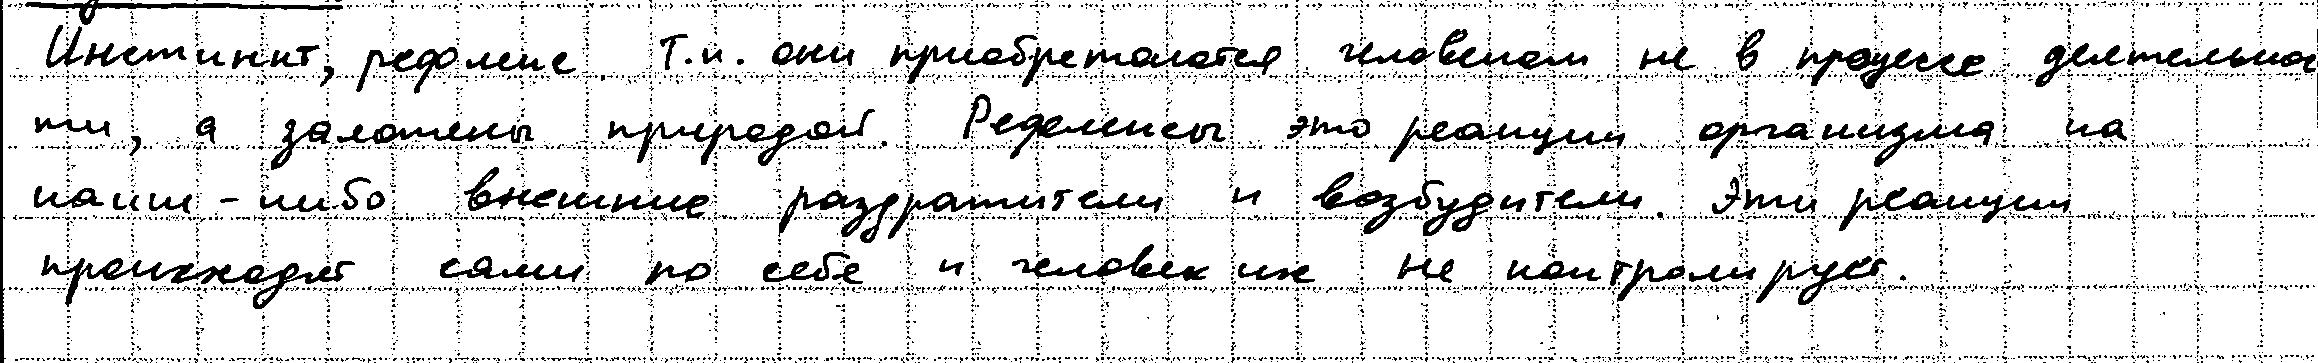 Инстинкт, рефлекс. Т.к. они приобретаются человеком не в процессе деятельнос
ти, а заложены природой. Рефлексы это реакции организма на
какие-либо внешние раздражители и возбудители. Эти реакции
происходят сами по себе и человек их не контролирует.